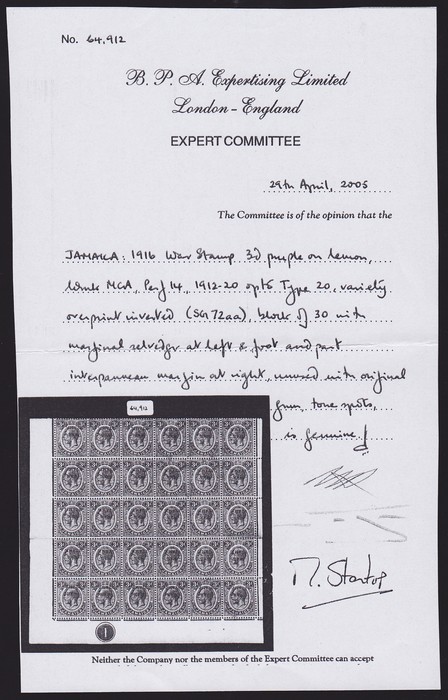 No. 64,912
B. P. A. Expertising Limited
London - England
EXPERT COMMITTEE
29th April, 2005
The Committee is of the opinion that the
JAMAICA: 1916 War Stamp 3d purple on lemon,
Wmk MCA, Perf 14, 1912-20 opts Type 20, variety
overprint inverted (SG 72aa), block of 30 with
marginal selvedge at left & foot and part
interpanneau margin at right, unused with original
gum, tone spots,
is genuine
64,912
1
Neither the Company nor the members of the Expert Committee can accept